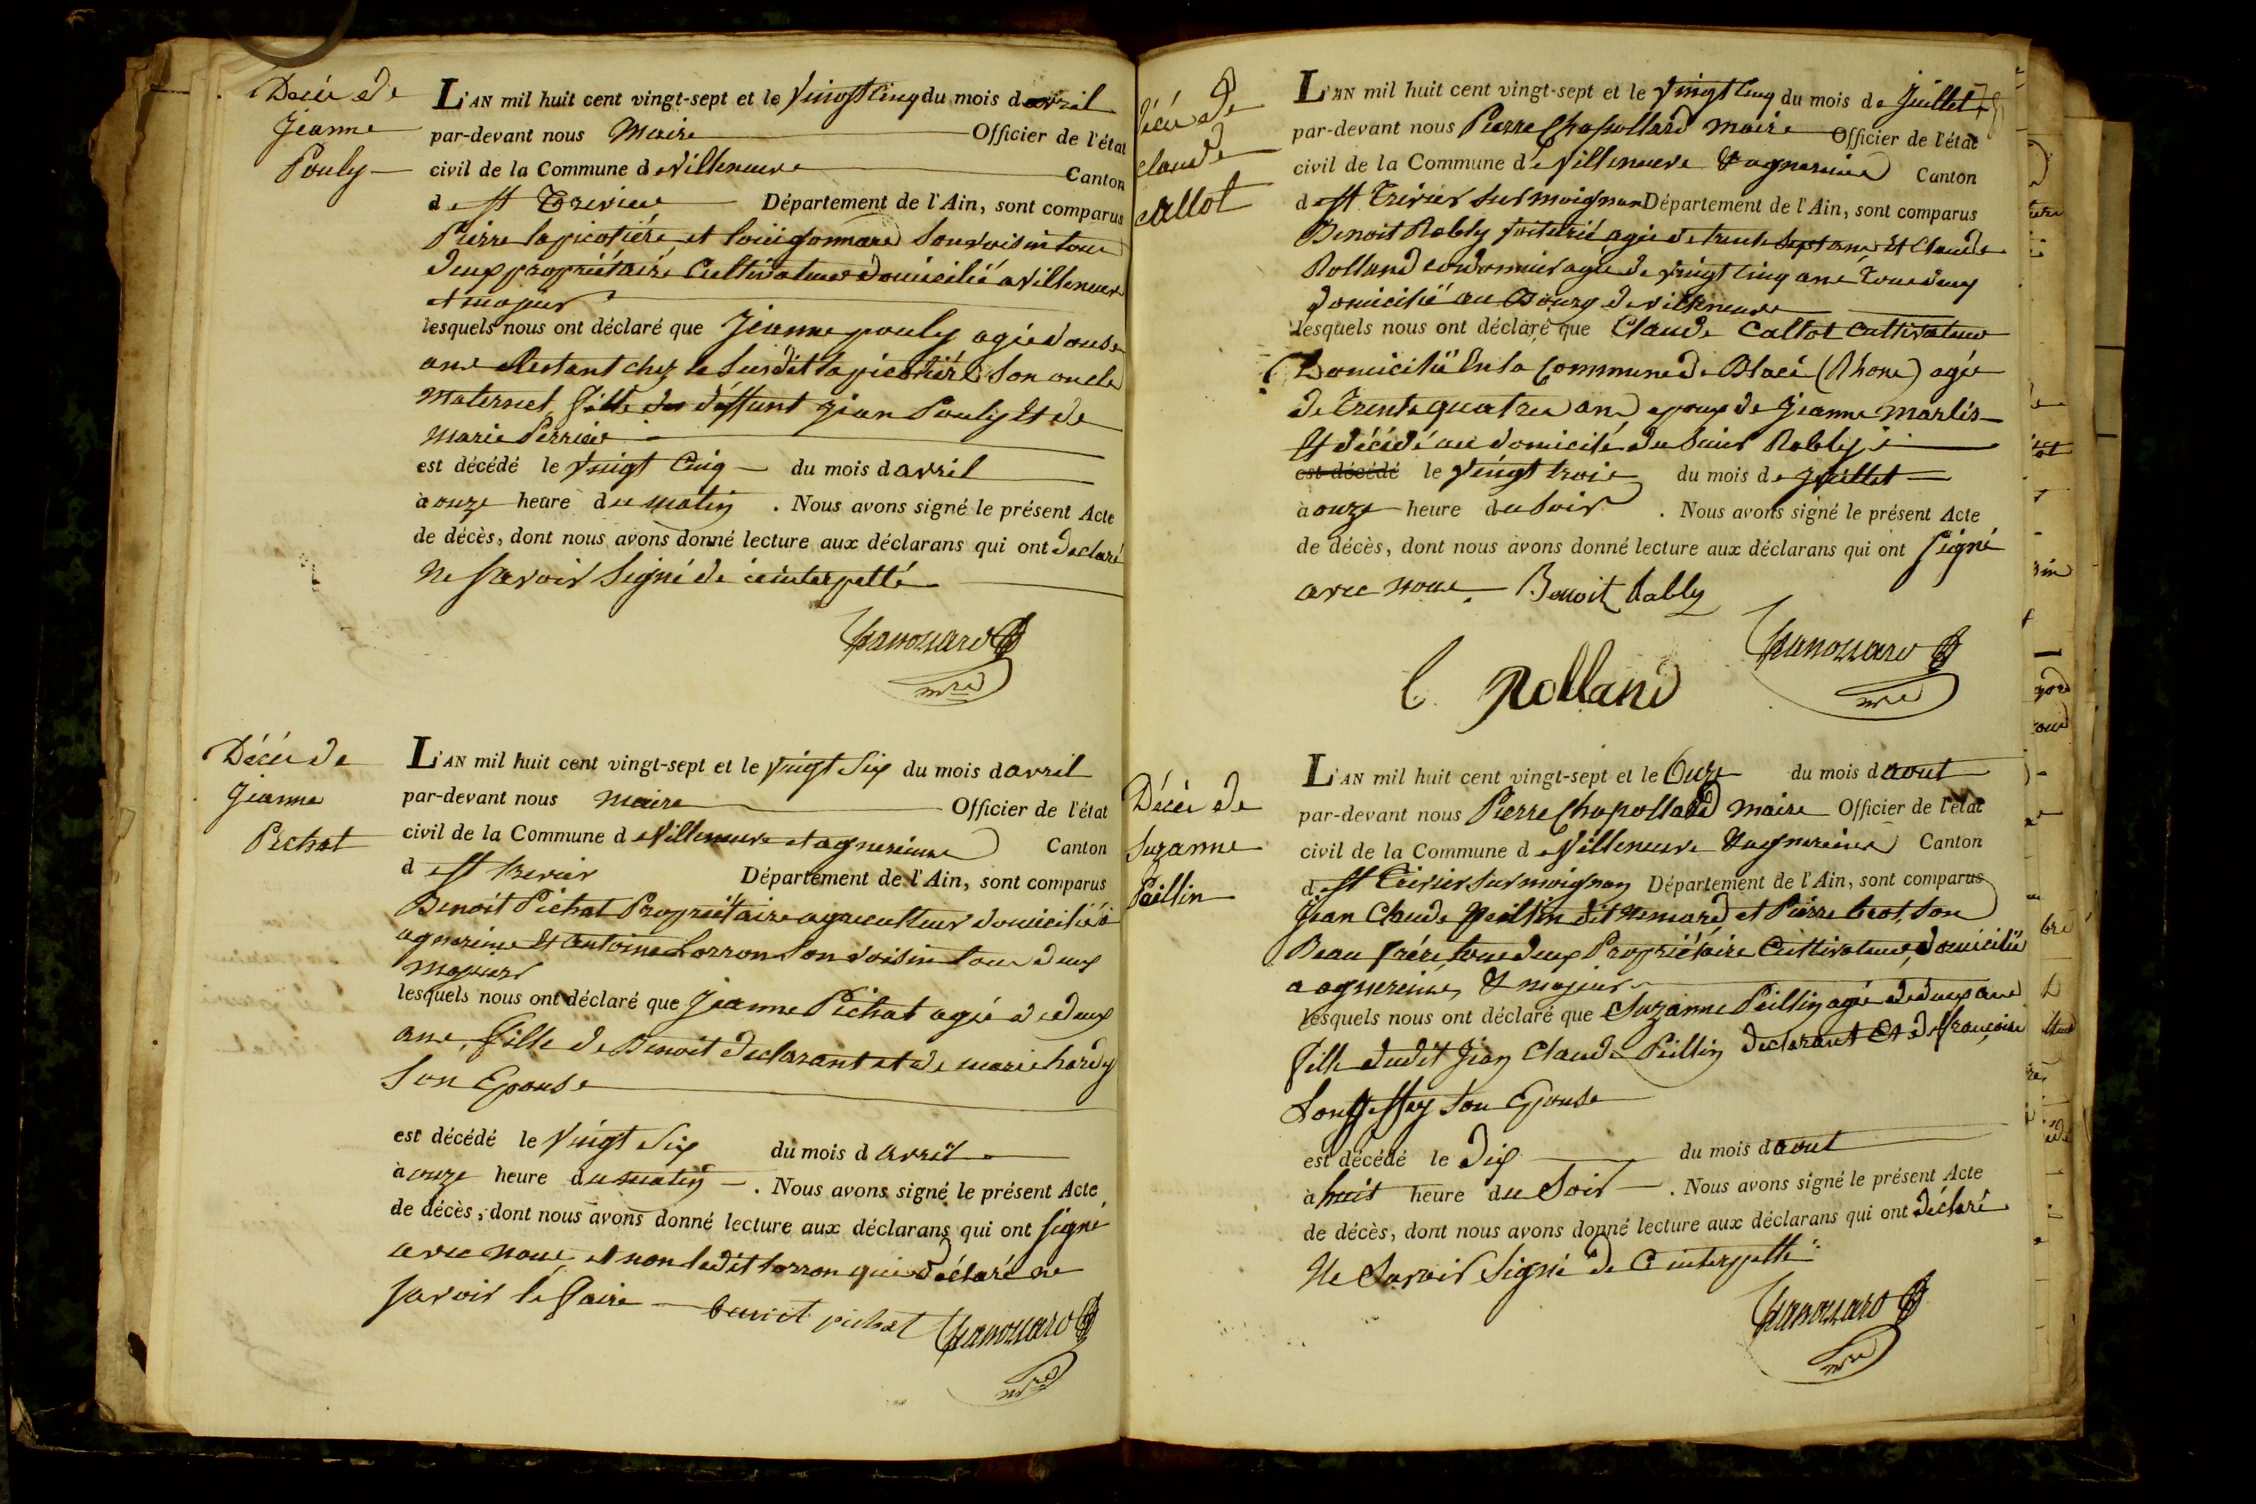 Décès de
Jeanne
Pouly
L'AN mil huit cent vingt-sept et le vingt cinq du mois d avril
par-devant nous Maire Officier de l'état
civil de la Commune de Villeneuve Canton
de St Trivier Département de l'Ain, sont comparus
Pierre lapicotière et son voisin tous
deux propriétaire Cultivateur domicilié a Villeneuve
et majeur
lesquels nous ont déclaré que Jeanne pouly agée d'onse
ans Restant chez le susdit lapicotière son oncle
maternel fille de deffunt Jean Pouly Et de
Marie Perrier
est décédé le vingt cinq du mois d avril
à onze heure du matin . Nous avons signé le présent Acte
de décès, dont nous avons donné lecture aux déclarans qui ont déclaré
Ne savoir signé de ce interpellé
Chapollard
mre
Décès de
Jeanne
Pichat
L'AN mil huit cent vingt-sept et le vingt six du mois d avril
par-devant nous maire Officier de l'état
civil de la Commune de Villeneuve et agnereins Canton
de St trivier Département de l'Ain, sont comparus
Benoit Pichat Propriétaire agriculteur domicilié à
agnereins Et antoine Lorron son voisin tous deux
majeurs
lesquels nous ont déclaré que Jeanne Pichat agée de deux
ans, fille de Benoit declarant et de marie hardy
son Epouse
est décédé le vingt six du mois d avril
à onze heure du matin . Nous avons signé le présent Acte
de décès, dont nous avons donné lecture aux déclarans qui ont signé
avec nous, et non ledit lorron qui a déclaré ne
savoir le faire benoit pichat Chapollard
mre
Décès de
claude
callot
L'AN mil huit cent vingt-sept et le vingt cinq du mois de Juillet
par-devant nous Pierre Chapollard maire Officier de l'état
civil de la Commune de Villeneuve & agnereins Canton
de St Trivier sur moignan Département de l'Ain, sont comparus
Benoit Robly voiturié agée de trente sept ans Et Claude
Rolland cordonnier agée de vingt cinq ans Tous deux
domicilié au Bourg de villeneuve
lesquels nous ont déclaré que Claude Callot cultivateur
Domicilié En la Commune de Blacé (Rhone) agée
de Trente quatre ans epoux de Jeanne
Et décédé au domicile du sieur Robly
est décédé le vingt trois du mois de Juillet
à onze heure du soir . Nous avons signé le présent Acte
de décès, dont nous avons donné lecture aux déclarans qui ont signé
avec nous. Benoit Robly
Chapollard
mre
C Rolland
Décès de
Suzanne
Peillin
L'AN mil huit cent vingt-sept et le Onze du mois d aout
par-devant nous Pierre Chapollard maire Officier de l'état
civil de la Commune de Villeneuve & agnereins Canton
de St Trivier sur moignan Département de l'Ain, sont comparus
Jean Claude Peillin dit et Pierre son
Beau frère, tous deux Propriétaire Cultivateur, domicilié
a agnereins, & majeur
lesquels nous ont déclaré que Suzanne Peillin agée de deux ans
fille dudit Jean Claude Peillin declarant Et de françoise
son Epouse
est décédé le dix du mois d aout
à huit heure du Soir . Nous avons signé le présent Acte
de décès, dont nous avons donné lecture aux déclarans qui ont déclaré
Ne Savoir Signé de Ce interpellé
Chapollard
mre